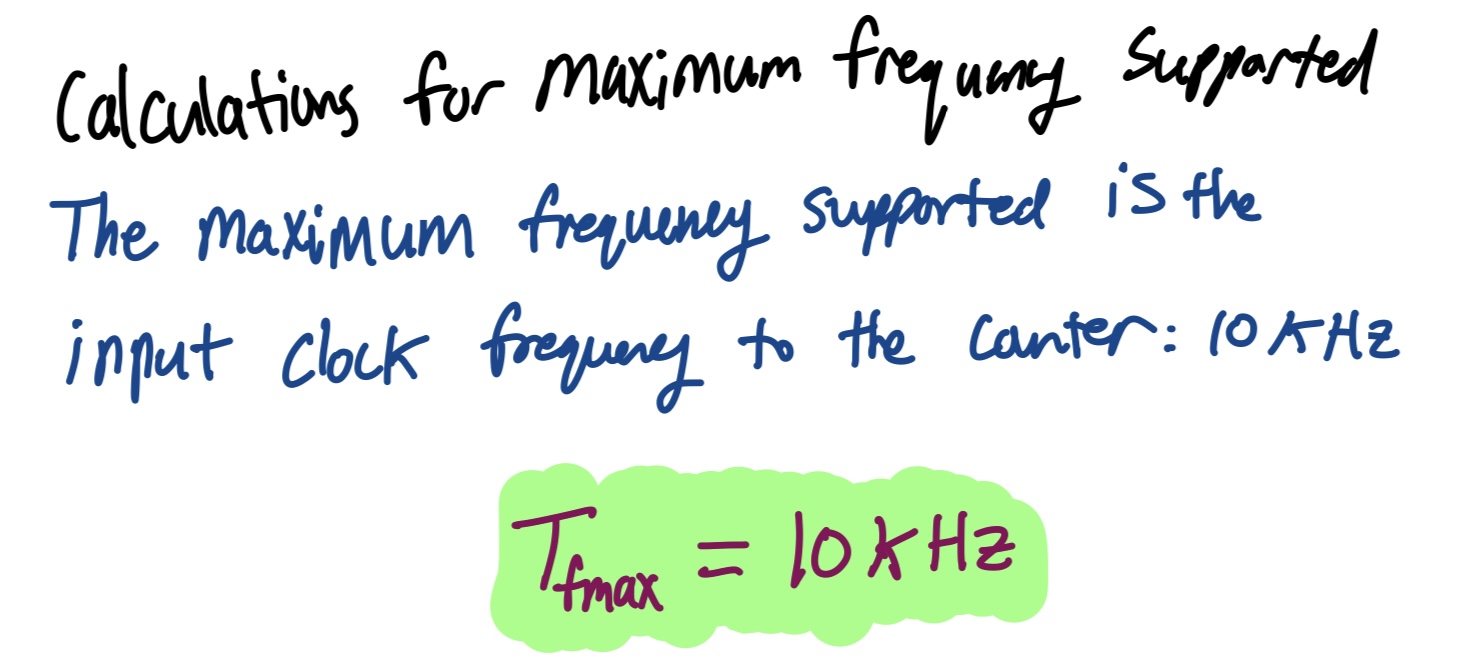 Calculations for maximum frequency supported
The maximum frequency supported is the
input clock frequency to the counter: 10 KHz
Tfmax = 10 KHz